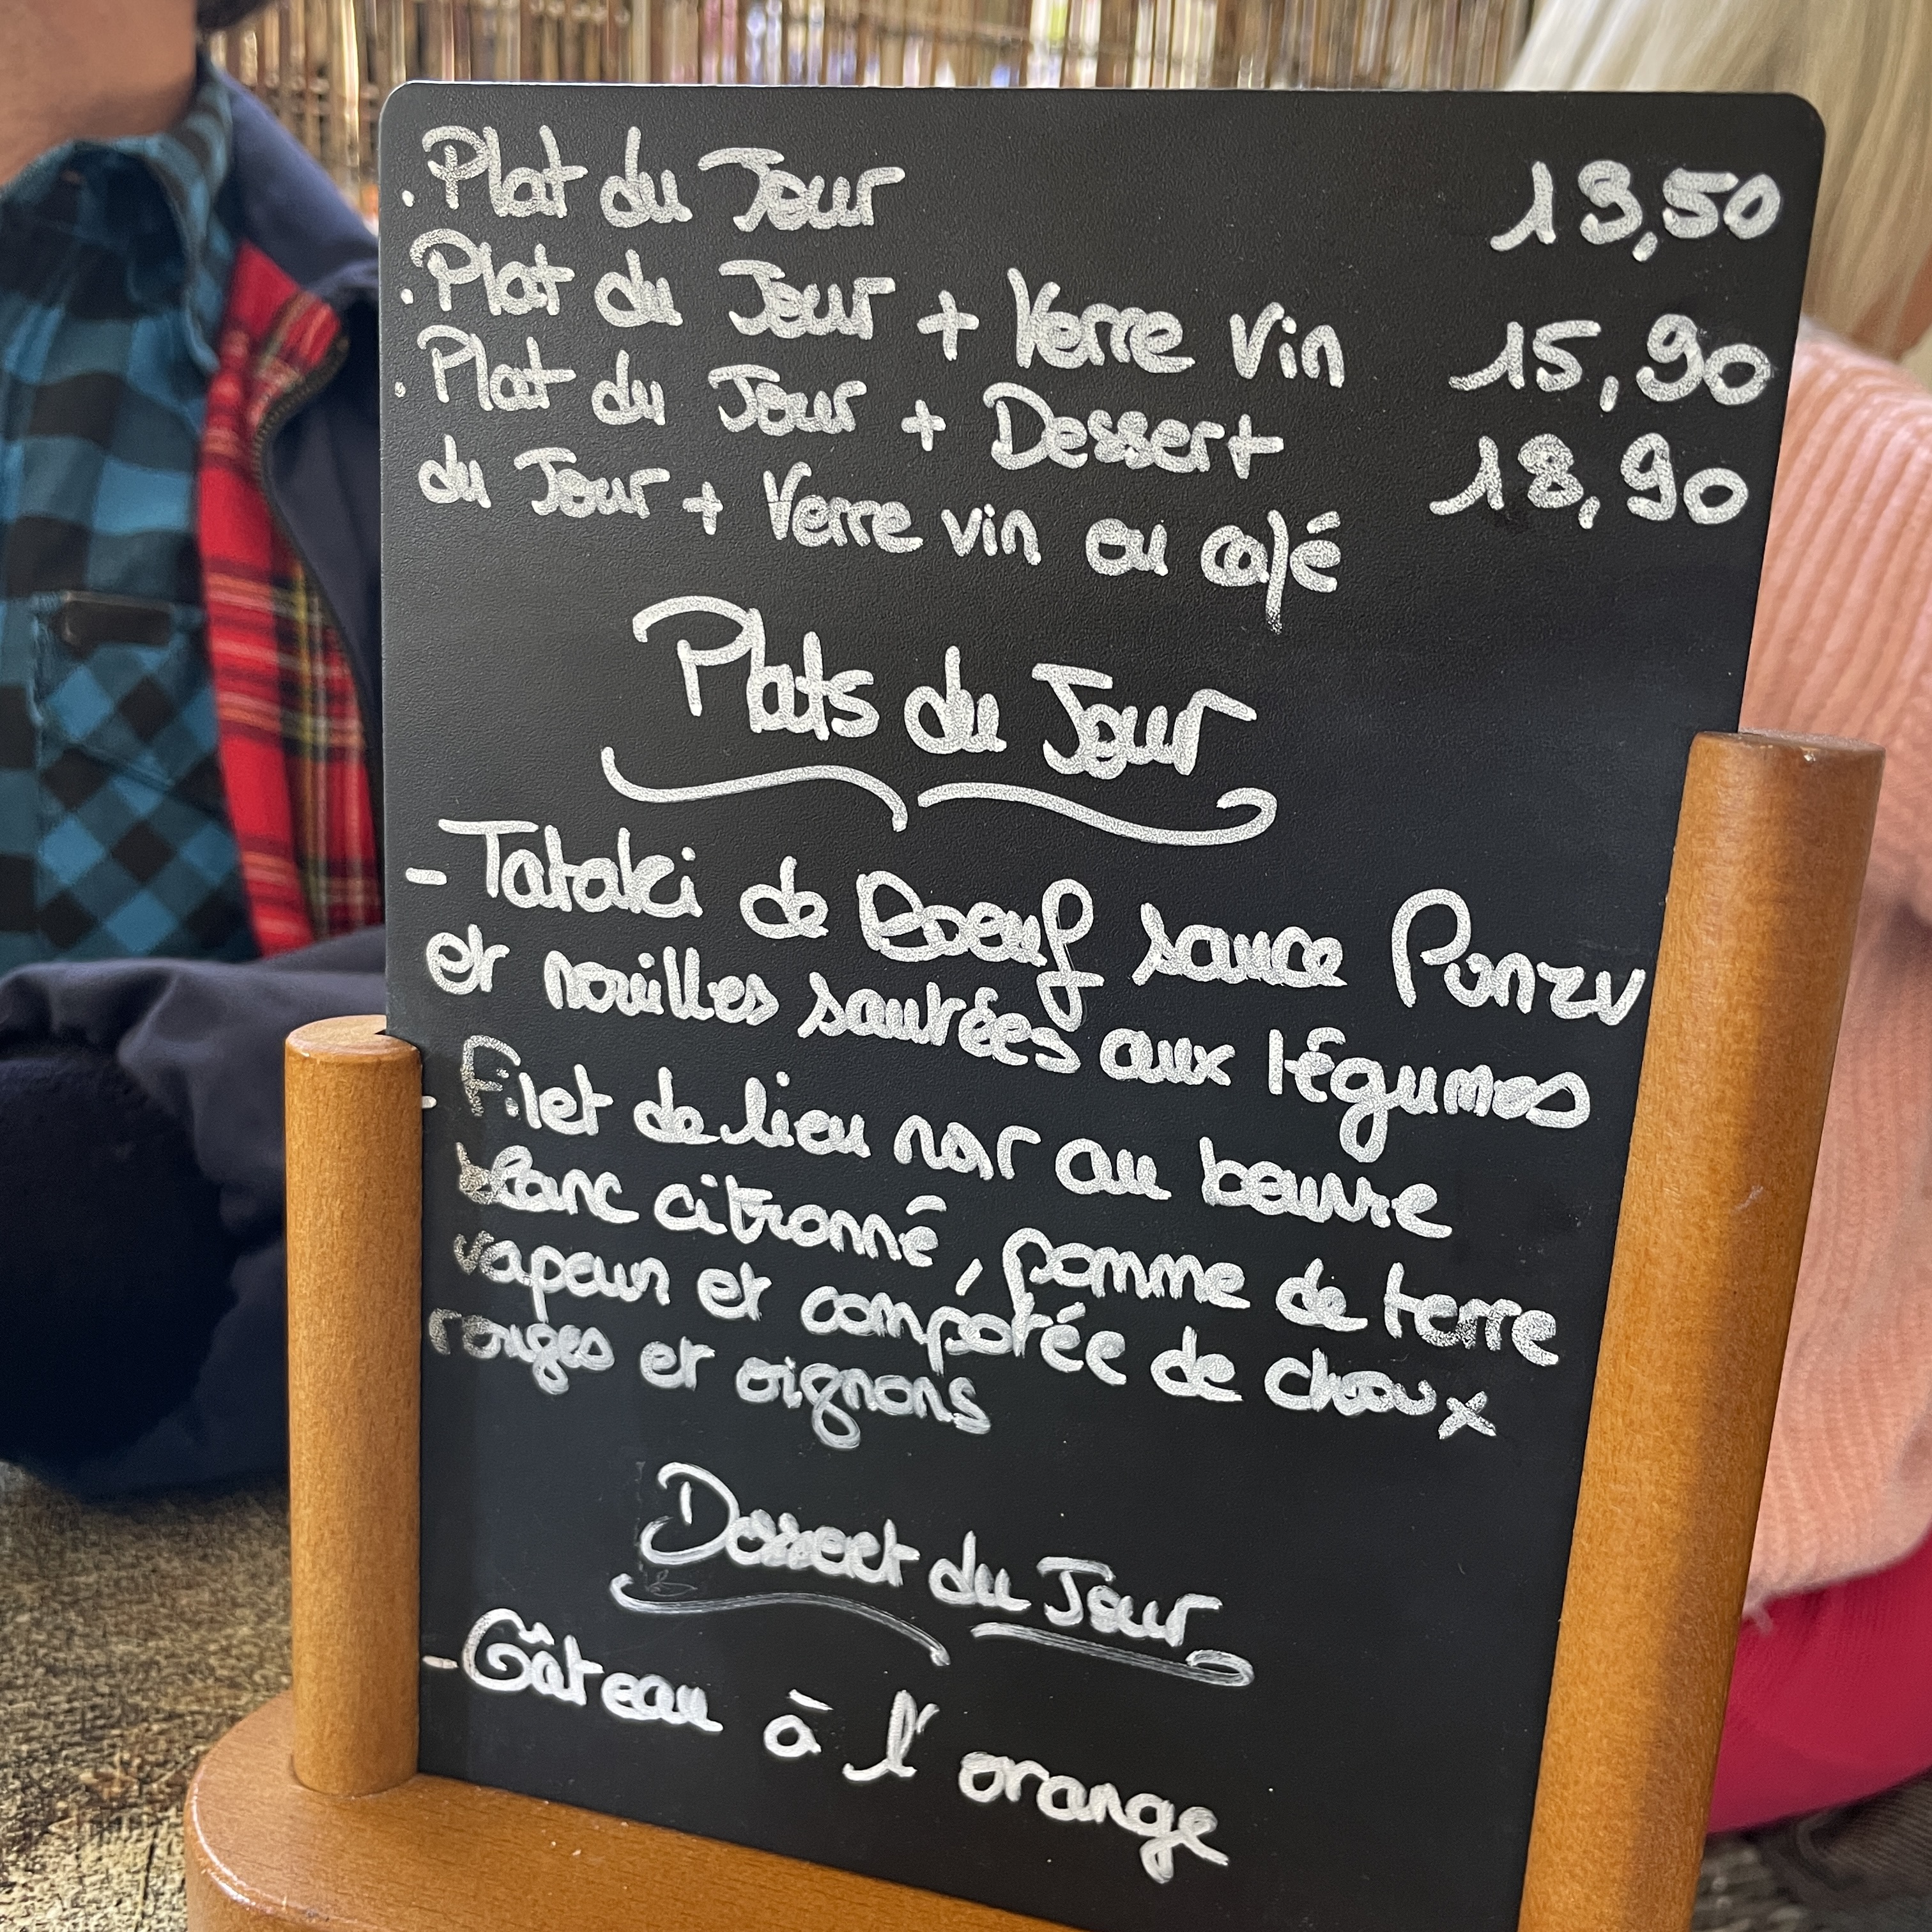 . Plat du Jour 13,50
. Plat du Jour + Verre vin 15,90
. Plat du Jour + Dessert 18,90
du Jour + Verre vin ou café
Plats du Jour
- Tataki de Boeuf sauce Ponzu
et nouilles sautées aux légumes
- Filet de lieu noir au beurre
blanc citronné, pomme de terre
vapeur et compotée de choux
rouges et oignons
Dessert du Jour
- Gâteau à l'orange